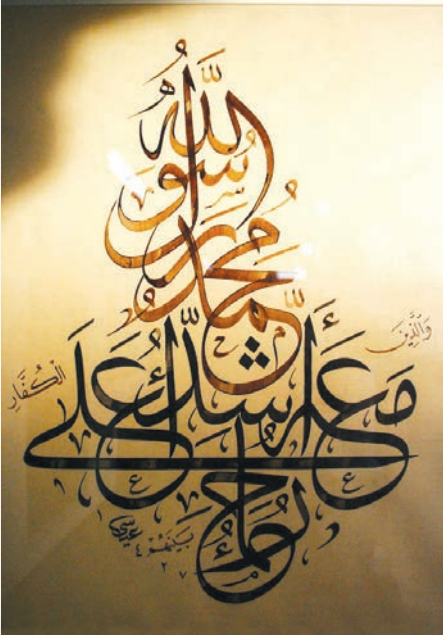 محمد رسول الله
والذين
معه أشداء على
الكفار
رحماء
بينهم